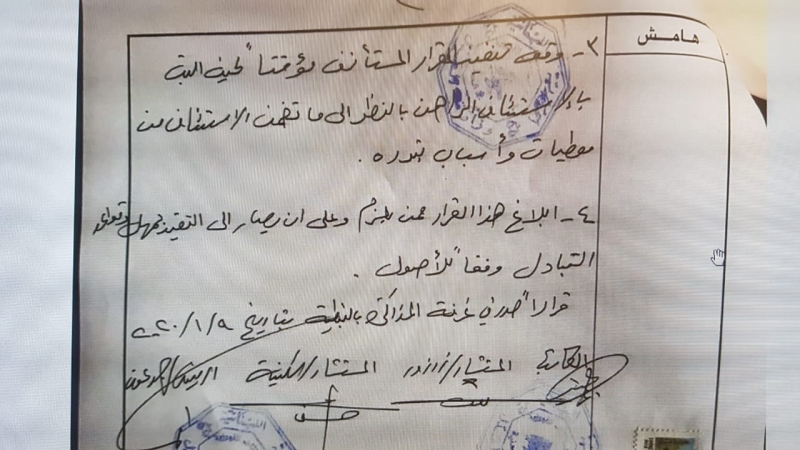 هامش
٣- وقف تنفيذ القرار المستأنف مؤقتاً لحين البت
بالإستئناف الراهن بالنظر الى ما تضمن الاستئناف من
معطيات وأسباب تبرره.
٤- ابلاغ هذا القرار ممن يلزم وعلى ان يصار الى التقيد بمهل وقواعد
التبادل وفقاً للأصول.
قراراً صدر في غرفة المذاكرة بالنبطية بتاريخ ٩/١/٢٠٢٠
الكاتبة المستشار/ المستشار/ الرئيس/